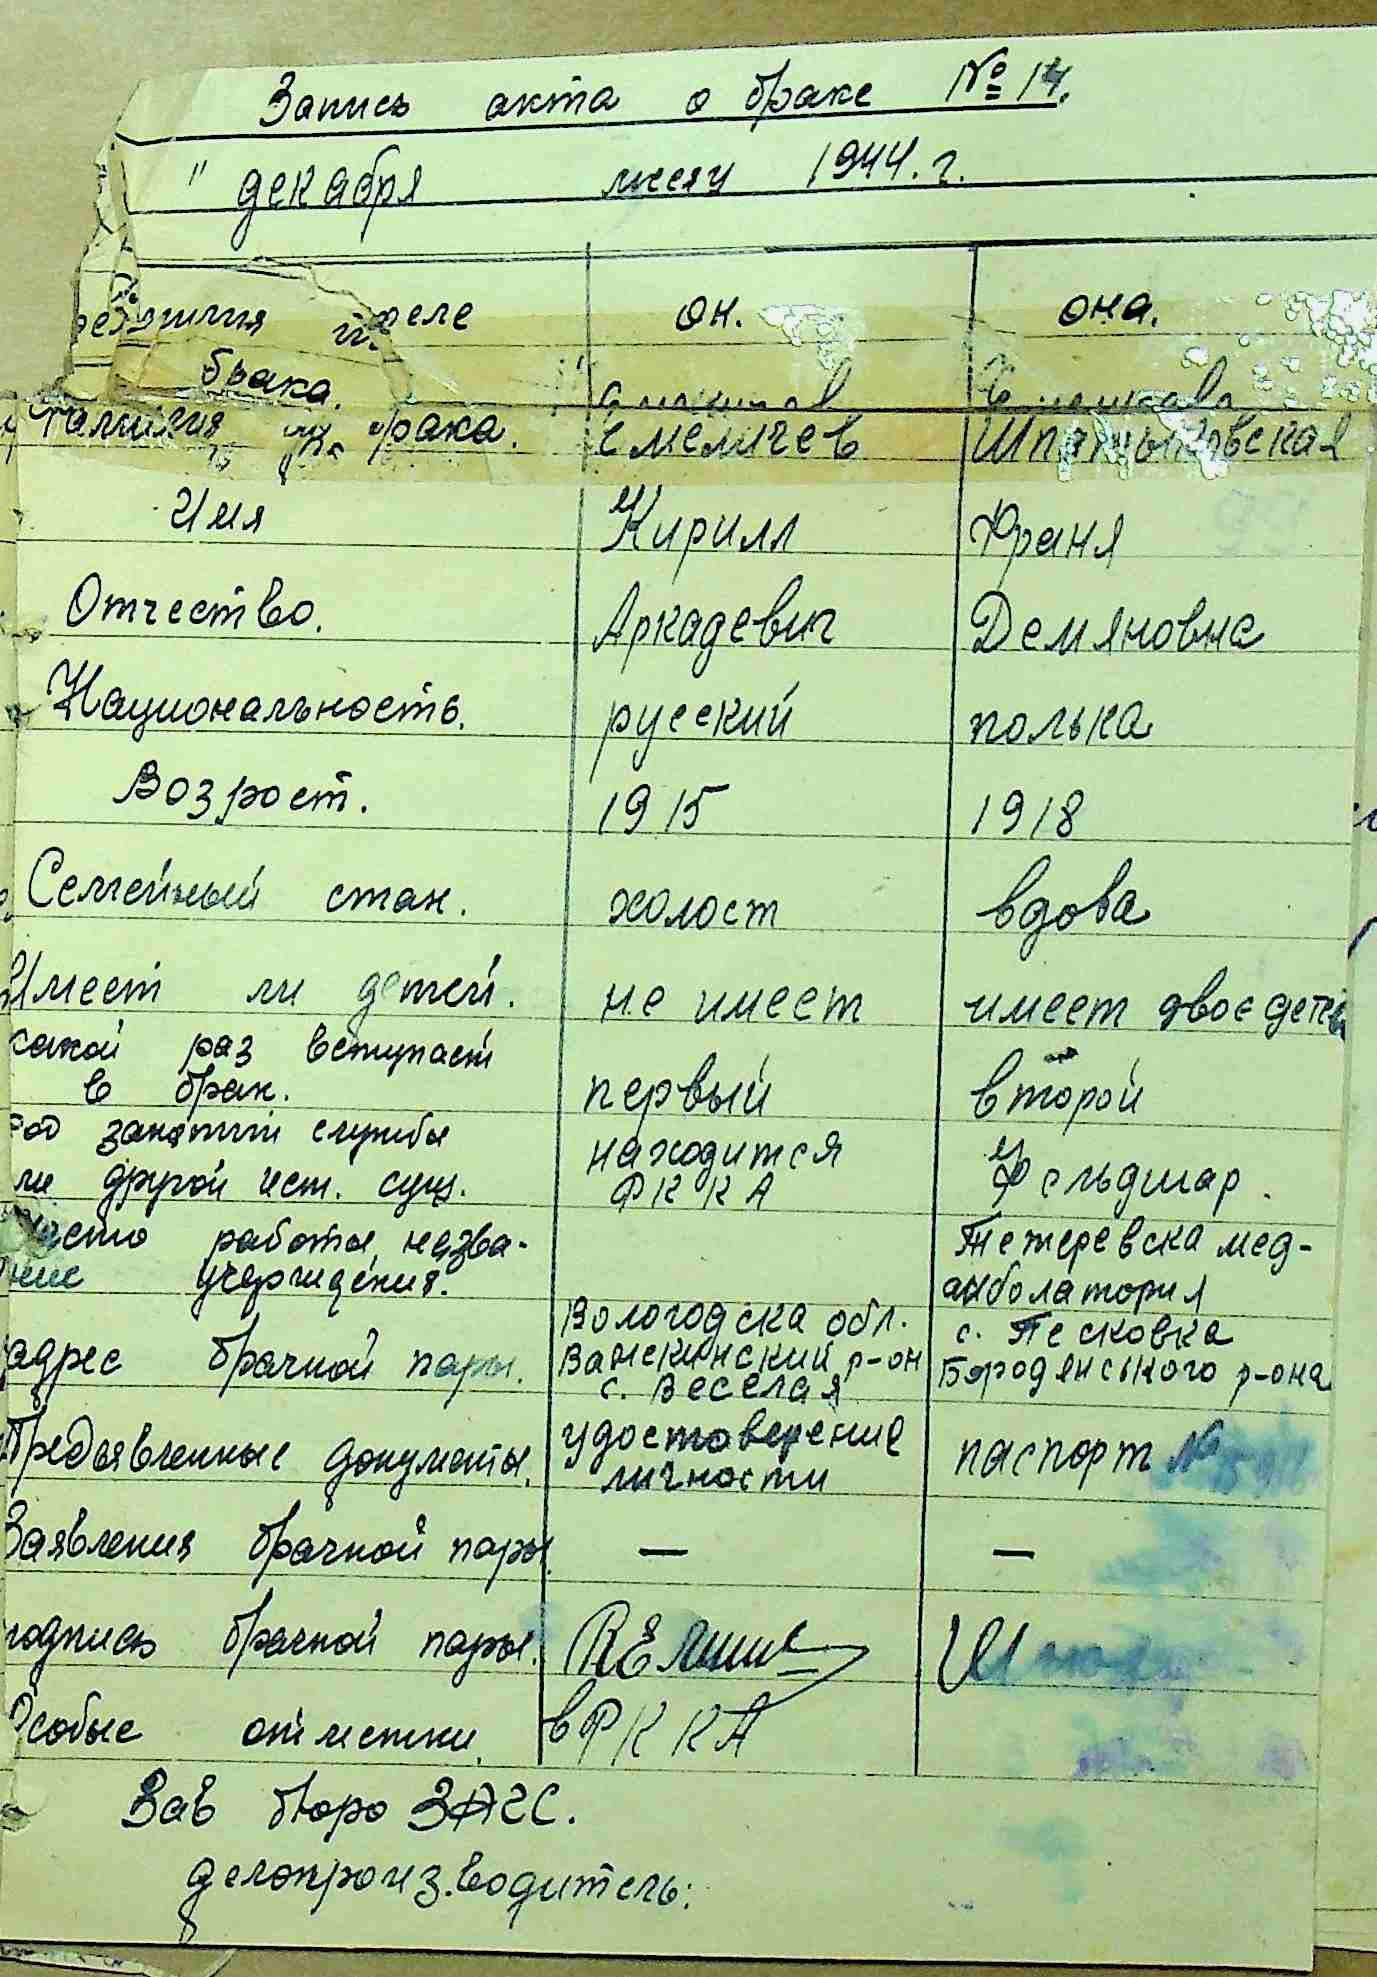 Запись акта о браке № 14.
" декабря месяц 1944. г.
после брака. он. она.
Фамилия до брака. Емеличев
Имя Кирилл Франя
Отчество. Аркадевич Демяновна
Национальность. русский полька
Возрост. 1915 1918
Семейный стан. холост вдова
Имеет ли детей. не имеет имеет двое детей
какой раз вступает
в брак. первый второй
род занятий службы находится Фельдшар.
ли другой ист. сущ. РККА
место работы, назва- Тетеревска мед-
ние учереждения. анболатория
Вологодска обл. с. Песковка
адрес брачной пары. район Бородянського р-она
с. Веселая
Предъявленные документы. удостоверение паспорт №
личности
Заявления брачной пары. — —
подпись брачной пары.
Особые отметки. в РККА
Зав бюро ЗАГС.
делопроизводитель: